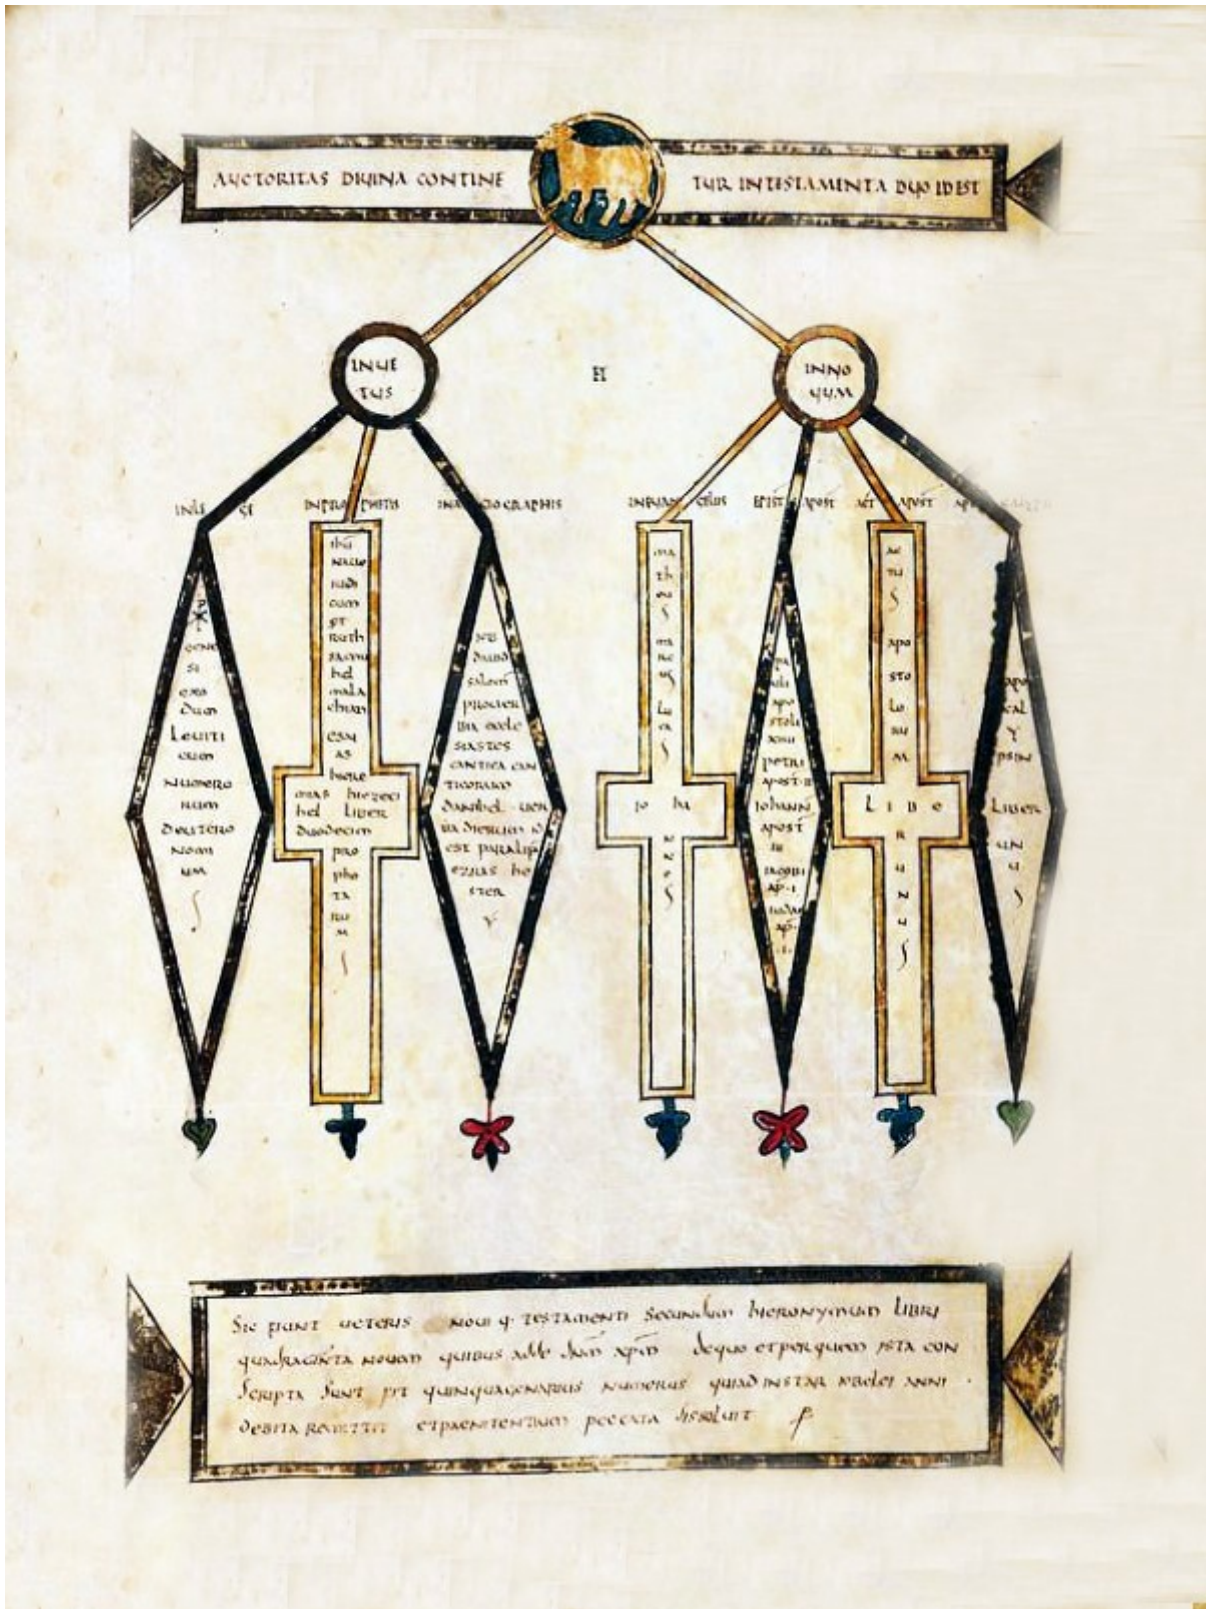 AUCTORITAS DIUINA CONTINE TUR INTESTAMENTA DUO IDEST
INUE
TUS
ET
INNO
UUM
INLE GE
INPRO PHETIS
INA GIOGRAPHIS
INEUAN GELIIS
EPIST APOST
ACT APOST
APO
GENE
SI
EXO
DUM
LEUITI
CUM
NUMERO
RUM
DEUTERO
NOMI
UM
IHU
NAUE
IUDI
CUM
ET
RUTH
SAMU
HEL
MALA
CHIAM
ESAI
AS
HIERE
MIAS HIEZECI
HEL LIBER
DUODECIM
PRO
PHE
TA
RU
M
DAUID
SALOM
PROUER
BIA ECCLE
SIASTES
CANTICA CAN
TICORUM
DANIHEL UER
BA DIERUM ID
EST PARALIP
EZRAS HE
STER
MA
TH
EUS
MA
RC
US
LU
CAS
IO HA
N
N
E
S
PAU
LI
APO
STOLI
XIIII
PETRI
APOST II
IOHANN
APOST
III
IACOBI
AP I
IUDAE
AP
I
AC
TU
S
APO
STO
LO
RU
M
L I B E
R
U
N
U
S
APO
CAL
Y
PSIN
LIBER
UN
U
S
Sic fiunt ueteris noui q. testamenti secundum hieronymum libri
quadraginta nouem quibus adde dnm xpm de quo et per quem ista con
scripta sunt fit quinquagenarius numerus qui ad instar iobelei anni
debita remittit et paenitentium peccata dissoluit